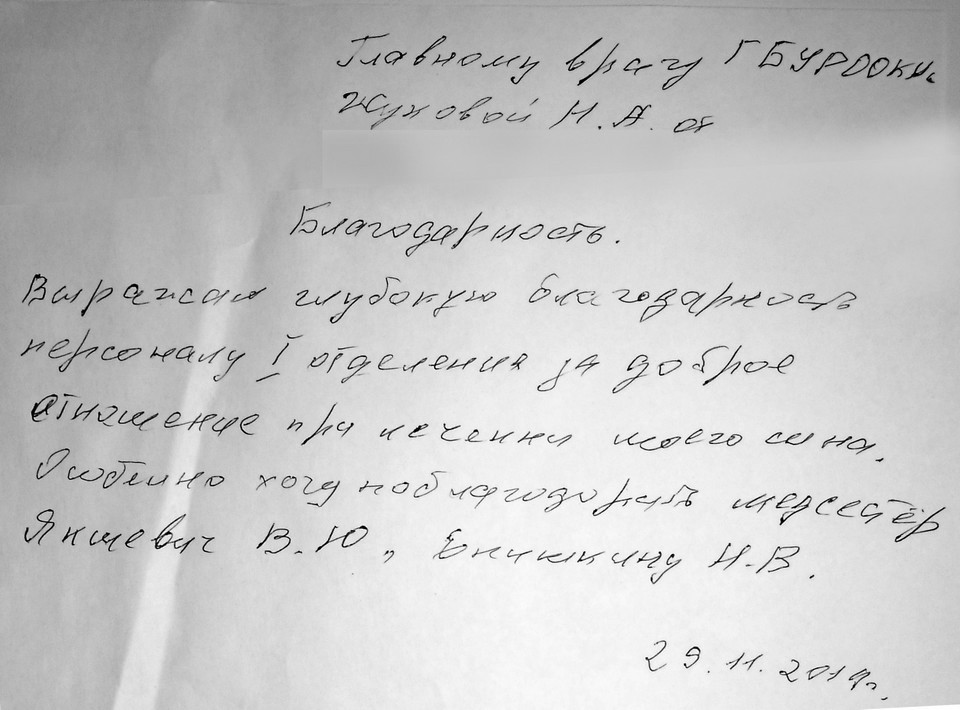 Главному врачу ГБУРООКИ.
Жуковой Н.А. от
Благодарность.
Выражаем глубокую благодарность
персоналу I отделения за доброе
отношение при лечении моего сына.
Особенно хочу поблагодарить медсестёр
Якшевич В.Ю., Еникшину Н.В.
29.11.2019г.